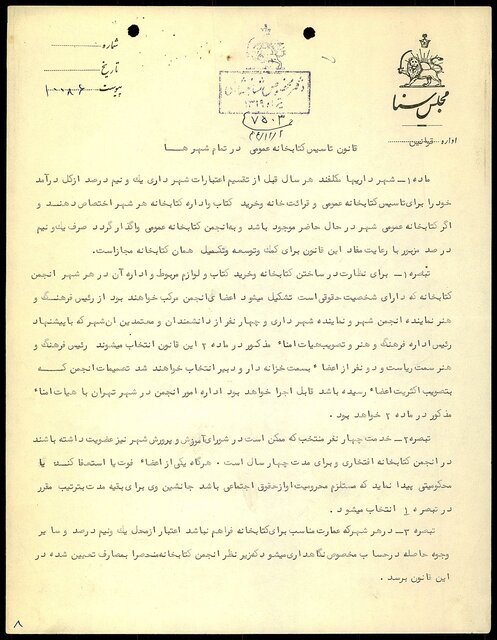 شماره
تاریخ
پیوست ۱۰۰۸۶
دفتر مخصوص شاهنشاهی
۷۵۰۳
مجلس سنا
اداره قوانین
قانون تاسیس کتابخانه عمومی در تمام شهر هــا
ماده ۱ــ شهر داریها مکلفند هر سال قبل از تقسیم اعتبارات شهر داری یك و نیم درصد ازکل درآمد
خود را برای تاسیس کتابخانه عمومی و قرائت خانه وخرید کتاب واداره کتابخانه هر شهر اختصاص دهنــد و
اگر کتابخانه عمومی شهر در حال حاضر موجود باشد و به انجمن کتابخانه عمومی واگذار گردد صرف یك و نیم
در صد مزبور با رعایت مفاد این قانون برای کمك وتوسعه وتکمیل همان کتابخانه مجازاست.
تبصره ۱ــ برای نظارت در ساختن کتابخانه وخرید کتاب و لوازم مربوط و اداره آن در هر شهر انجمن
کتابخانه که دارای شخصیت حقوقی است تشکیل میشود اعضای انجمن مرکب خواهند بود از رئیس فرهنــگ و
هنر نماینده انجمن شهر و نماینده شهر داری و چهار نفر از دانشمندان و معتمدین آن شهر که با پیشنهاد
رئیس اداره فرهنگ و هنر و تصویب هیات امناء مذکور در ماده ۲ این قانون انتخاب میشوند رئیس فرهنگ و
هنر سمت ریاست و دو نفر از اعضاء بسمت خزانه دار و دبیر انتخاب خواهند شد تصمیمات انجمن کــه
بتصویب اکثریت اعضاء رسیده باشد قابل اجرا خواهد بود اداره امور انجمن در شهر تهران با هیات امناء
مذکور در ماده ۲ خواهد بود .
تبصره ۲ــ خدمت چهار نفر منتخب که ممکن است در شورای آموزش و پرورش شهر نیز عضویت داشته باشند
در انجمن کتابخانه افتخاری و برای مدت چهار سال است . هرگاه یکی از اعضاء فوت یا استعفا کنــد یا
محکومیتی پیدا نماید که مستلزم محرومیت از حقوق اجتماعی باشد جانشین وی برای بقیه مدت بترتیب مقرر
در تبصره ۱ انتخاب میشود .
تبصره ۳ــ در هر شهر که عمارت مناسب برای کتابخانه فراهم نباشد اعتبار از محل یك ونیم درصد و سایر
وجوه حاصله در حساب مخصوص نگاهداری میشود که زیر نظر انجمن کتابخانه منحصرا بمصارف تعیین شده در
این قانون برسد .
۸